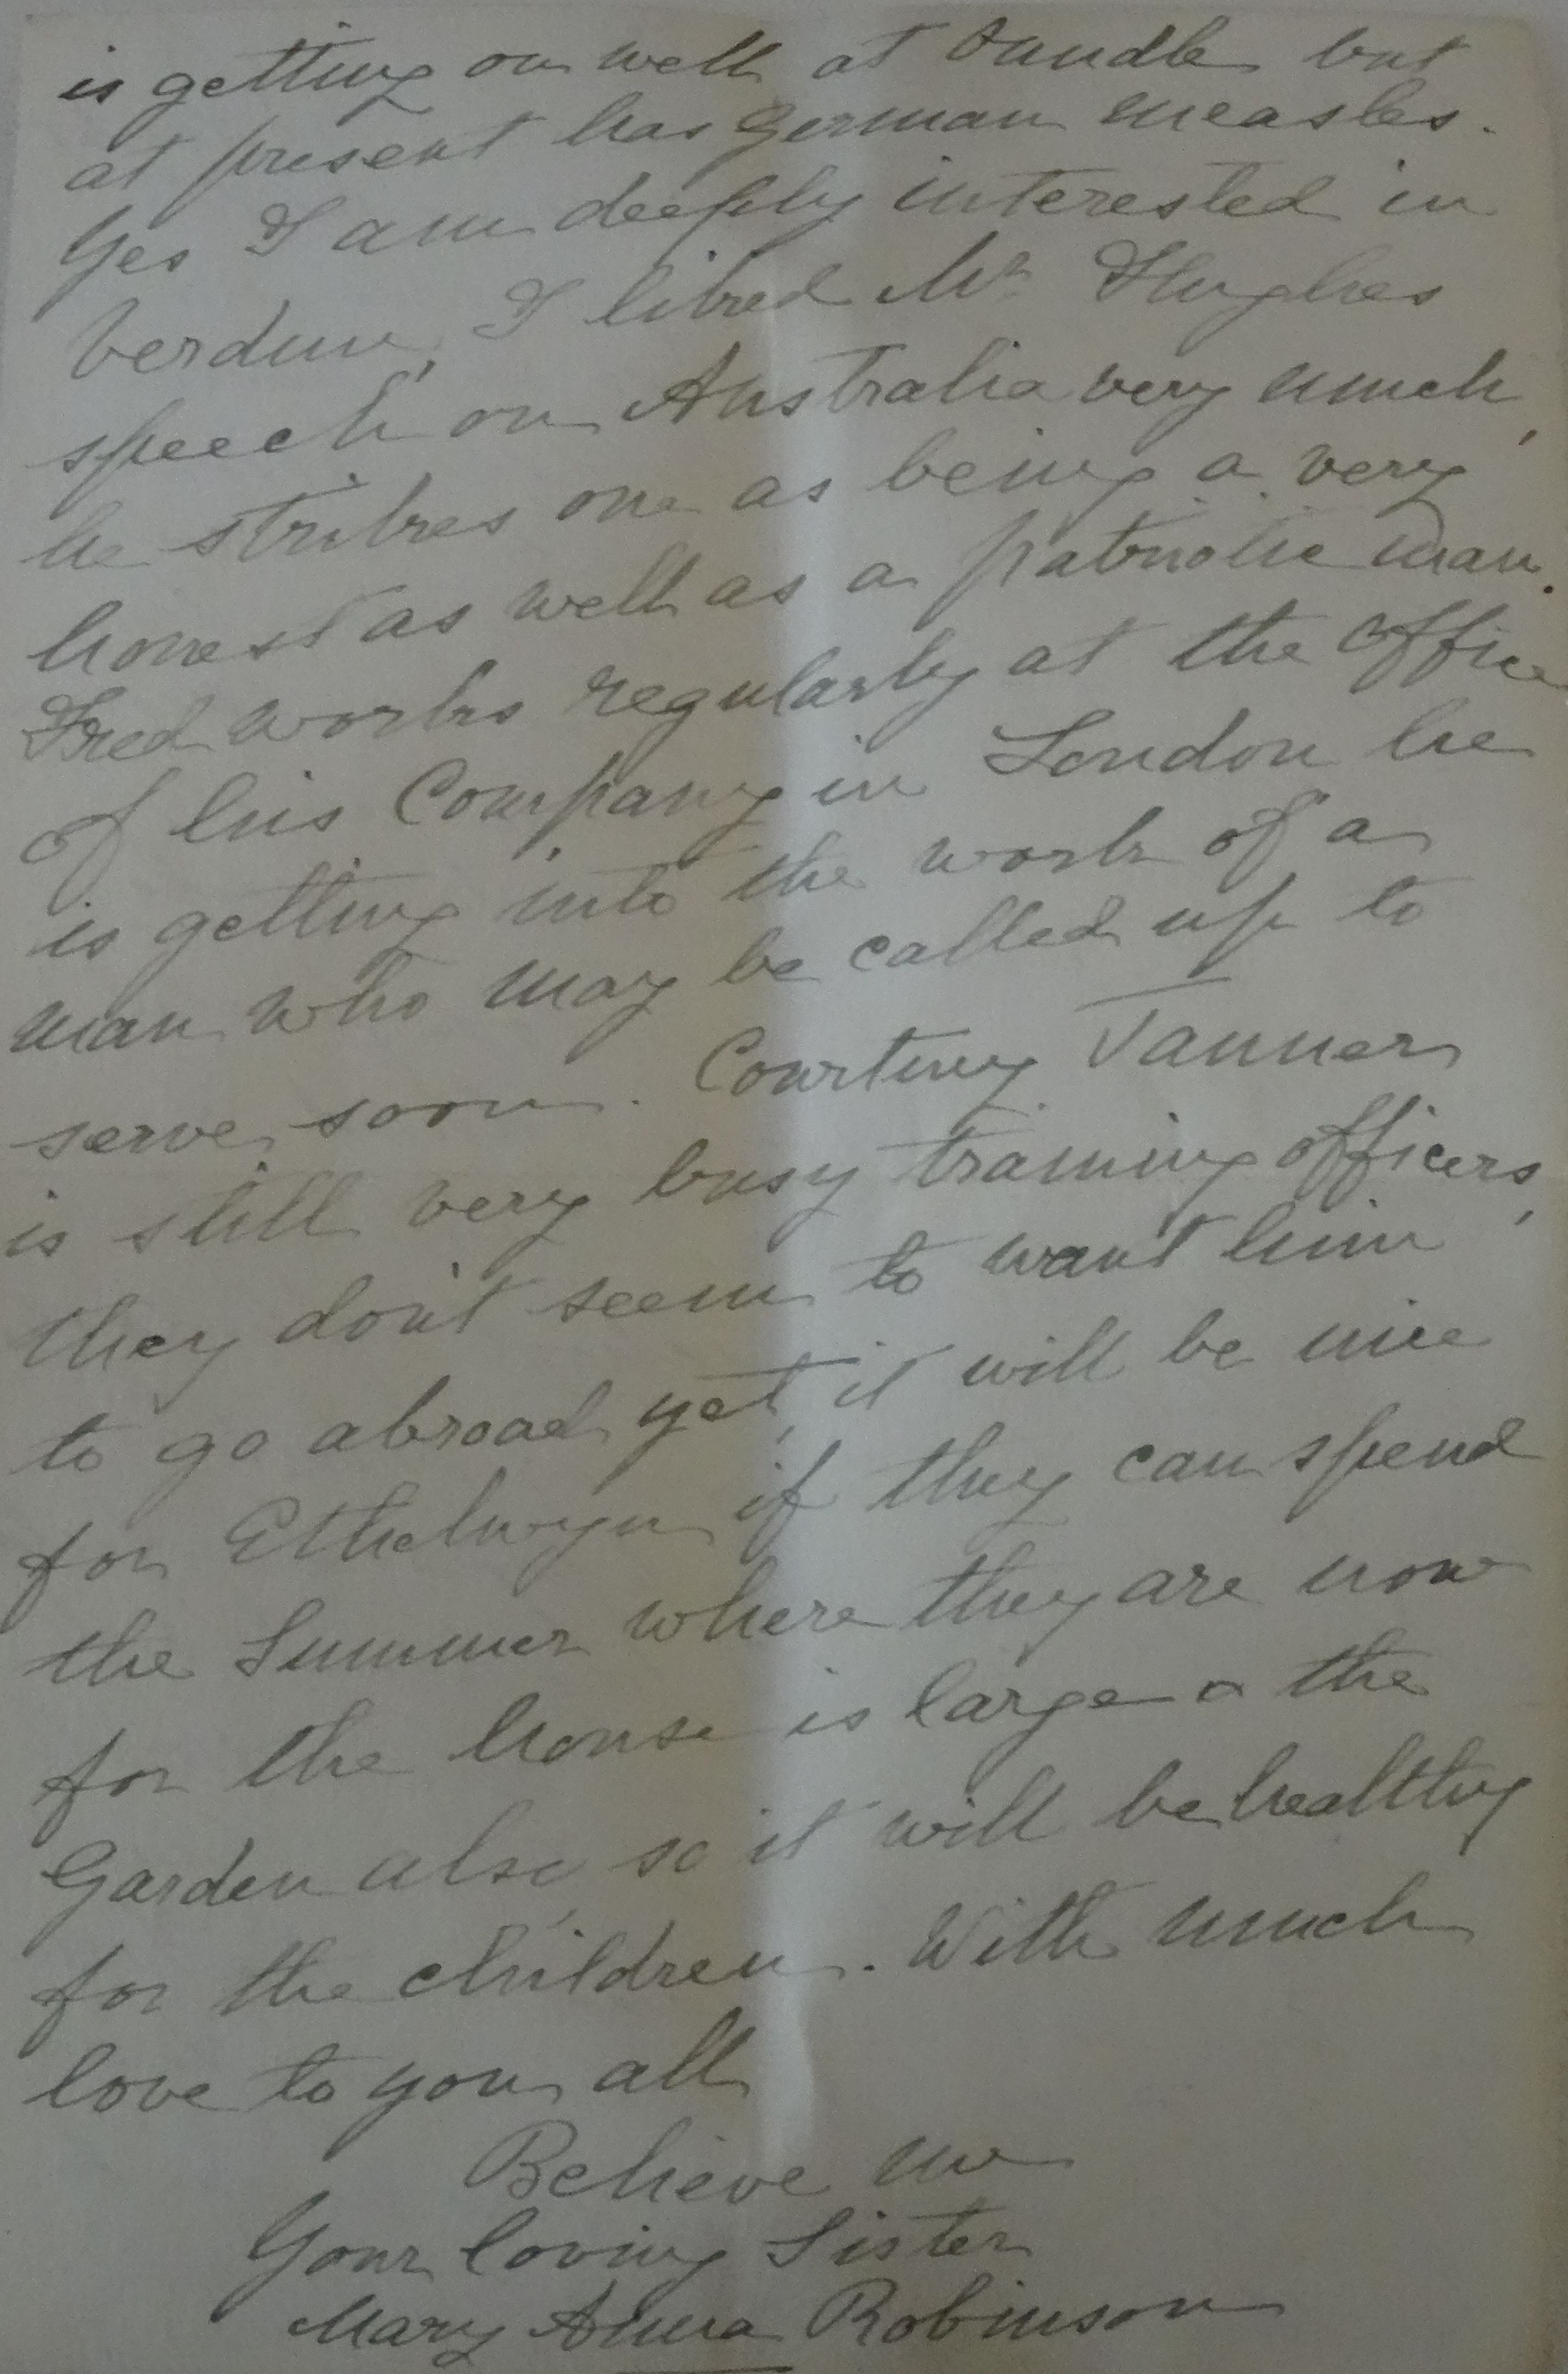 is getting on well at Oundle but
at present has German measles.
Yes I am deeply interested in
Verdun, I liked Mr Hughes
speech on Australia very much,
he strikes one as being a very
honest as well as a patriotic man.
Fred works regularly at the office
of his Company in London he
is getting into the work of a
man who may be called up to
serve soon. Courtney Tanner
is still very busy training officers,
they don't seem to want him
to go abroad yet, it will be nice
for Ethelwyn if they can spend
the Summer where they are now
for the house is large & the
Garden also, so it will be healthy
for the children. With much
love to you all
Believe me
Your loving Sister
Mary Anna Robinson